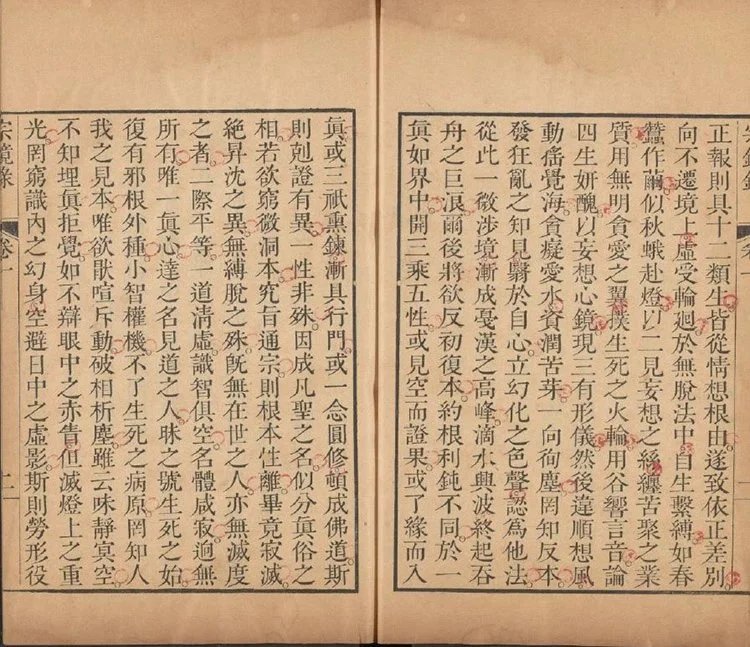 正報則具十二類生皆從情想根由遂致依正差別
向不遷境上虛受輪廻於無脫法中自生繫縛如春
蠶作繭似秋蛾赴燈以二見妄想之絲纏苦聚之業
質用無明貪愛之翼撲生死之火輪用谷響言音論
四生妍醜以妄想心鏡現三有形儀然後違順想風
動搖覺海貪癡愛水資潤苦芽一向徇塵罔知反本
發狂亂之知見翳於自心立幻化之色聲認為他法
從此一微涉境漸成戞漢之高峰滴水興波終起吞
舟之巨浪爾後將欲反初復本約根利鈍不同於一
眞如界中開三乘五性或見空而證果或了緣而入
眞或三祇熏鍊漸具行門或一念圓修頓成佛道斯
則剋證有異一性非殊因成凡聖之名似分眞俗之
相若欲窮微洞本究旨通宗則根本性離畢竟寂滅
絕昇沈之異無縛脫之殊旣無在世之人亦無滅度
之者二際平等一道淸虛識智俱空名體咸寂逈無
所有唯一眞心達之名見道之人昧之號生死之始
復有邪根外種小智權機不了生死之病原罔知人
我之見本唯欲猒喧斥動破相析塵雖云味靜冥空
不知埋眞拒覺如不辯眼中之赤眚但滅燈上之重
光罔窮識內之幻身空避日中之虛影斯則勞形役
宗鏡錄 卷一